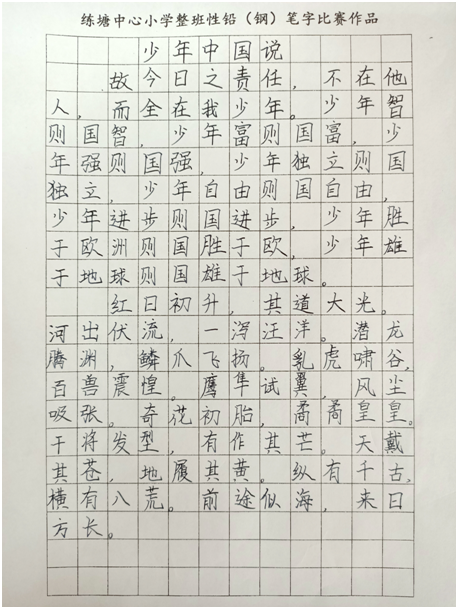 练塘中心小学整班性铅（钢）笔字比赛作品
少年中国说
故今日之责任，不在他
人，而全在我少年。少年智
则国智，少年富则国富，少
年强则国强，少年独立则国
独立，少年自由则国自由，
少年进步则国进步，少年胜
于欧洲则国胜于欧，少年雄
于地球则国雄于地球。
红日初升，其道大光。
河出伏流，一泻汪洋。潜龙
腾渊，鳞爪飞扬。乳虎啸谷，
百兽震惶。鹰隼试翼，风尘
吸张。奇花初胎，矞矞皇皇。
干将发型，有作其芒。天戴
其苍，地履其黄。纵有千古，
横有八荒。前途似海，来日
方长。